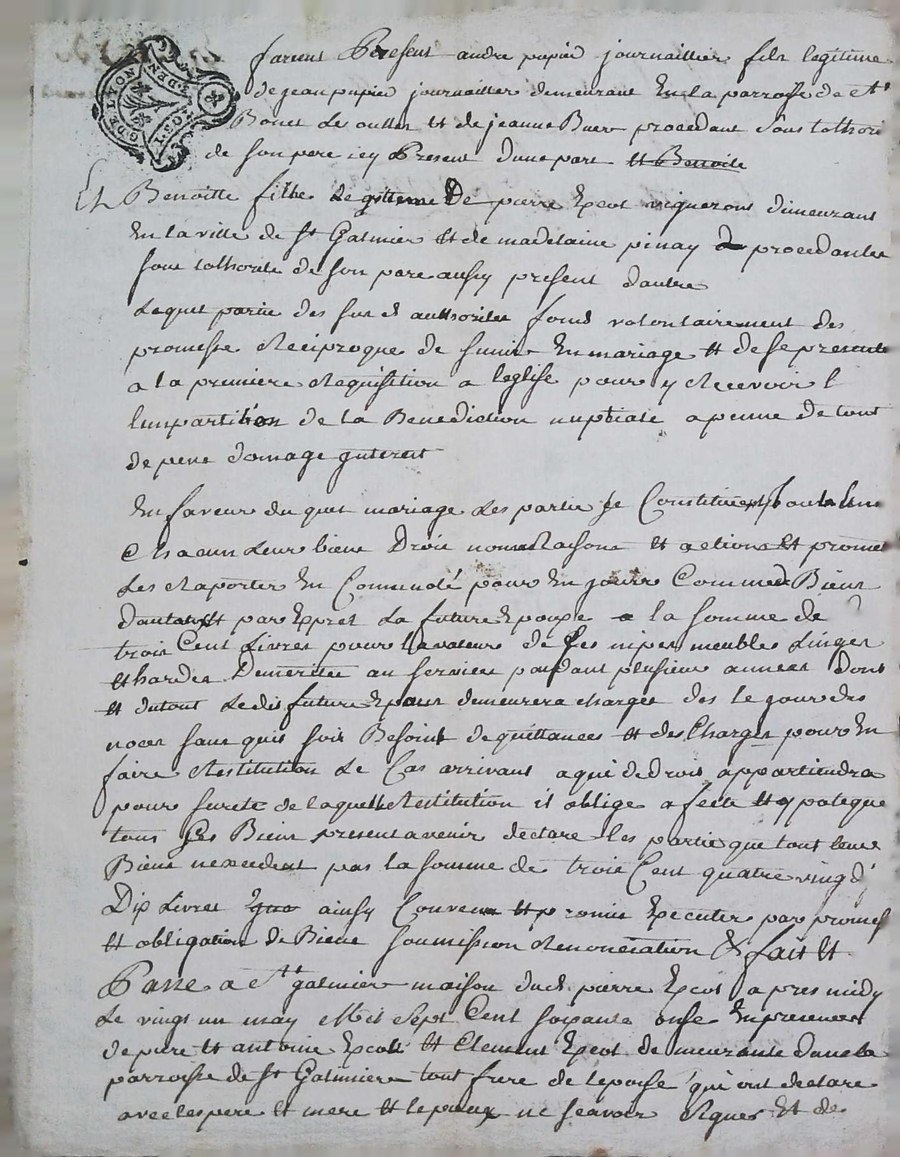 furent Present andre pupié journaillier fils legitime
de jean pupié journaillier demeurant En la parroisse de St
Bonet Le oulles Et de jeanne procedant Sous lothori
de son pere icy Present dune part Et Benoite
Et Benoitte fille Legitteme De pierre Epcot vigneront dimeurant
En la ville de St Galmier Et de madelaine pinay procedante
sous lothorite de son pere aussy present dautre
Lequel partie des sus d authorites fond volontairement des
promesse Reciproque de sunir En mariage Et de se presente
a la premiere Requisition a leglise pour y Recevoir l
limpartition de la Benediction nuptiale a penne de tout
de pene domage
En faveur du quel mariage Les partie se Constituent
Chacun Leur biens Drois noms Raisons Et actions Et promet
Les Raporter En Commude pour En jouire Comme Biens
dautant Et par Expret La future Epouze a la somme de
trois Cent Livres pour la valeur de Ses nipes meubles Linges
Et hardes Demerittee au services pandant plusieur annees Dont
Et du tout Le dis futur Epous demeurera charges des le jour des
noces sans quil soit Besoint de quittances Et des Charges pour En
faire Restitution Le Cas arrivant a qui de drois appartiendra
pour surete de laquelle Restitution il oblige afecte Et ypoteque
tous Ses Biens present avenir declare les partie que tout leurs
Biens nexcedent pas la somme de trois Cent quatre vingd
Dix Livres ainsy Convenu Et promis Executer par promes
Et obligation de Biens soumission Renonciation & fait Et
Passe a St galmier maison dud pierre Epcot apres midy
Le vingt un may Mil Sept Cent soixante onse En presences
de piere Et antoine Epcot Et Clement Epcot demeurants dans la
parroisse de St Galmiere tout frere de lepouse qui ont declare
avec les pere Et mere Et lepoux ne scavoir Signer Et de